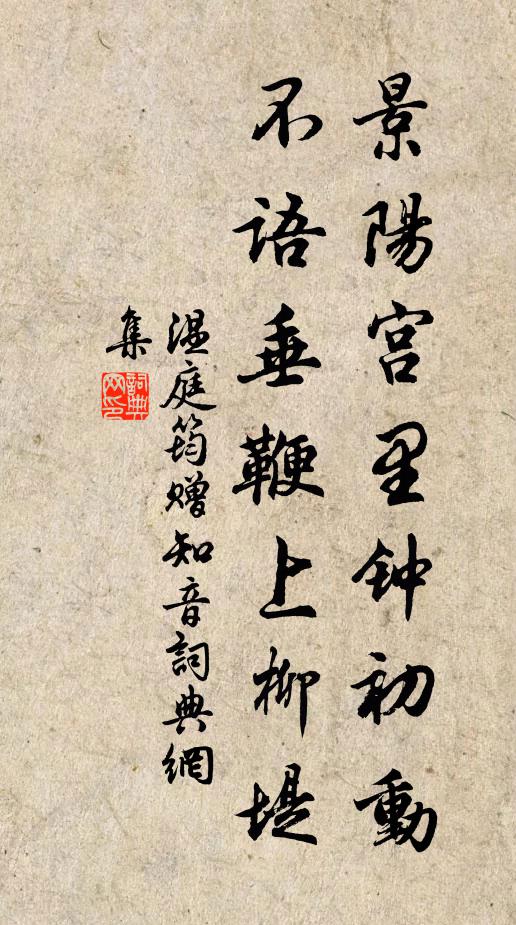 景陽宫里钟初動
不語垂鞭上柳堤
温庭筠贈知音詞典網
集
詞典
网印